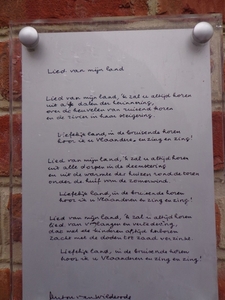 Lied van mijn land
Lied van mijn land, 'k zal u altijd horen
uit alle dalen der herinnering,
over de heuvelen van ruisend koren
en de rivier in haar steigering.
Liefelijk land, in de bruisende koren
hoor ik u Vlaanderen, en zing en zing!
Lied van mijn land, 'k zal u altijd horen
uit alle dorpen in de deemstering
en uit de warmte der huizen rond de toren
onder de huif van de zomerwind.
Liefelijk land, in de bruisende koren
hoor ik u Vlaanderen en zing en zing!
Lied van mijn land, 'k zal u altijd horen
lied van verlangen en vertedering,
dat met de kinderen altijd herboren
zacht met de doden tot zaad verzinkt.
Liefelijk land, in de bruisende koren
hoor ik u Vlaanderen en zing en zing!
Anton van Wilderode